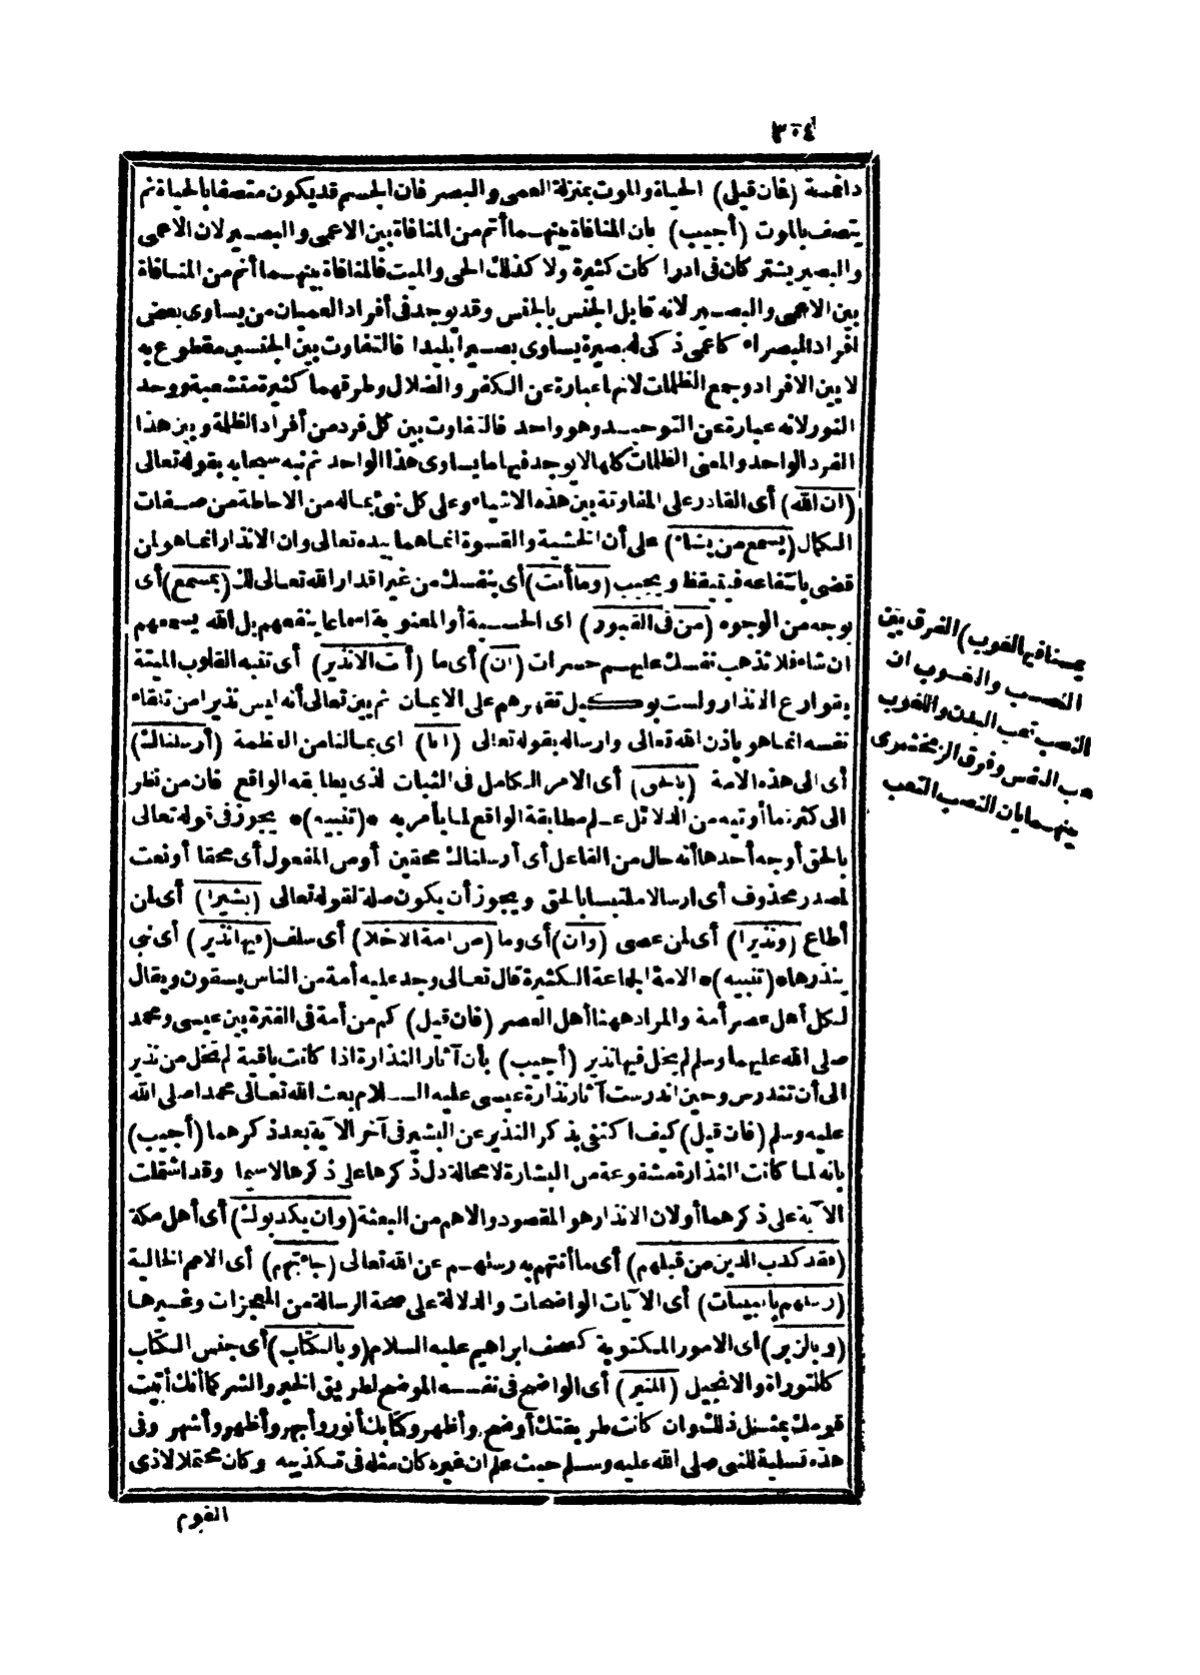 ٣٠٤
دائمة (فان قيل) الحياة والموت بمنزلة العمى والبصر فان الجسم قد يكون متصفا بالحياة ثم
يتصف بالموت (أجيب) بان المنافاة بينهما أتم من المنافاة بين الاعمى والبصير لان الاعمى
والبصير يشتركان فى ادراكات كثيرة ولا كذلك الحى والميت فالمنافاة بينهما أتم من المنافاة
بين الاعمى والبصير لانه قابل الجنس بالجنس وقد يوجد فى أفراد العميان من يساوى بعض
افراد المبصراء كاعمى ذكى له بصيرة يساوى بصيرا بليدا فالتفاوت بين الجنسين مقطوع به
لا بين الافراد وجمع الظلمات لانها عبارة عن الكفر والضلال وطرقهما كثيرة متشعبة ووحد
النور لانه عبارة عن التوحيد وهو واحد فالتفاوت بين كل فرد من أفراد الظلمة وبين هذا
الفرد الواحد والمعنى الظلمات كلها لا يوجد فيها ما يساوى هذا الواحد ثم نبه سبحانه بقوله تعالى
(ان الله) أى القادر على المفاوتة بين هذه الاشياء وعلى كل شئ بماله من الاحاطة من صفات
الكمال (يسمع من يشاء) على أن الخشية والقسوة انماهما بيده تعالى وان الانذار انماهو لمن
قضى بانتفاعه فيتيقظ ويجيب (وما أنت) أى بنفسك من غير اقدار الله تعالى لك (بمسمع) أى
بوجه من الوجوه (من فى القبور) اى الحسية أو المعنوية اسماعا ينفعهم بل الله يسمعهم
ان شاء فلا تذهب نفسك عليهم حسرات (ان) أى ما (أنت الانذير) أى تنبه القلوب الميتة
بقوارع الانذار ولست بوكيل تقهرهم على الايمان ثم بين تعالى أنه ليس نذيرا من تلقاء
نفسه انماهو باذن الله تعالى وارساله بقوله تعالى (انا) اى بمالنا من العظمة (أرسلناك)
أى الى هذه الامة (بالحق) أى الامر الكامل فى الثبات لذى يطابقه الواقع فان من نظر
الى كثرة ما أوتيه من الدلائل علم مطابقة الواقع لما يأمر به *(تنبيه)* يجوز فى قوله تعالى
بالحق أوجه أحدها أنه حال من الفاعل أى أرسلناك محقين أو من المفعول أى محقا أو نعت
لمصدر محذوف أى ارسالا ملتبسا بالحق ويجوز أن يكون صلة لقوله تعالى (بشيرا) أى لمن
أطاع (ونذيرا) أى لمن عصى (وان) أى وما (من امة الاخلا) أى سلف (فيها نذير) أى نبى
ينذرها *(تنبيه)* الامة الجماعة الكثيرة قال تعالى وجد عليه أمة من الناس يسقون ويقال
لكل أهل عصر أمة والمراد ههنا أهل العصر (فان قيل) كم من أمة فى الفترة بين عيسى ومحمد
صلى الله عليهما وسلم لم يخل فيها نذير (أجيب) بأن آثار النذارة اذا كانت باقية لم تخل من نذير
الى أن تندرس وحين اندرست آثار نذارة عيسى عليه السلام بعث الله تعالى محمدا صلى الله
عليه وسلم (فان قيل) كيف اكتفى بذكر النذير عن البشير فى آخر الآية بعد ذكرهما (أجيب)
بانه لما كانت النذارة مشفوعة من البشارة لا محالة دل ذكرها على ذكرها لاسيما وقد اشتملت
الآية على ذكرهما أولان الانذار هو المقصود والاهم من البعثة (وان يكذبوك) أى أهل مكة
(فقد كذب الذين من قبلهم) أى ما أتتهم به رسلهم عن الله تعالى (جاءتهم) أى الامم الخالية
(رسلهم بالبينات) أى الآيات الواضحات والدلالة على صحة الرسالة من المعجزات وغيرها
(وبالزبر) أى الامور المكتوبة كصحف ابراهيم عليه السلام (وبالكتاب) أى جنس الكتاب
كالتوراة والانجيل (المنير) أى الواضح فى نفسه الموضح لطريق الخير والشر كما أنك أتيت
قومك بمثل ذلك وان كانت طريقتك أوضح وأظهر وكتابك أنور وأبهر وأظهر وأشهر وفى
هذه تسلية للنبى صلى الله عليه وسلم حيث علم ان غيره كان مثله فى تكذيبه وكان محتملا لاذى
القوم
يمسنا فيها لغوب) الفرق بين
النصب واللغوب ان
النصب تعب البدن واللغوب
تعب النفس وفرق الزمخشرى
بينهما بان النصب التعب